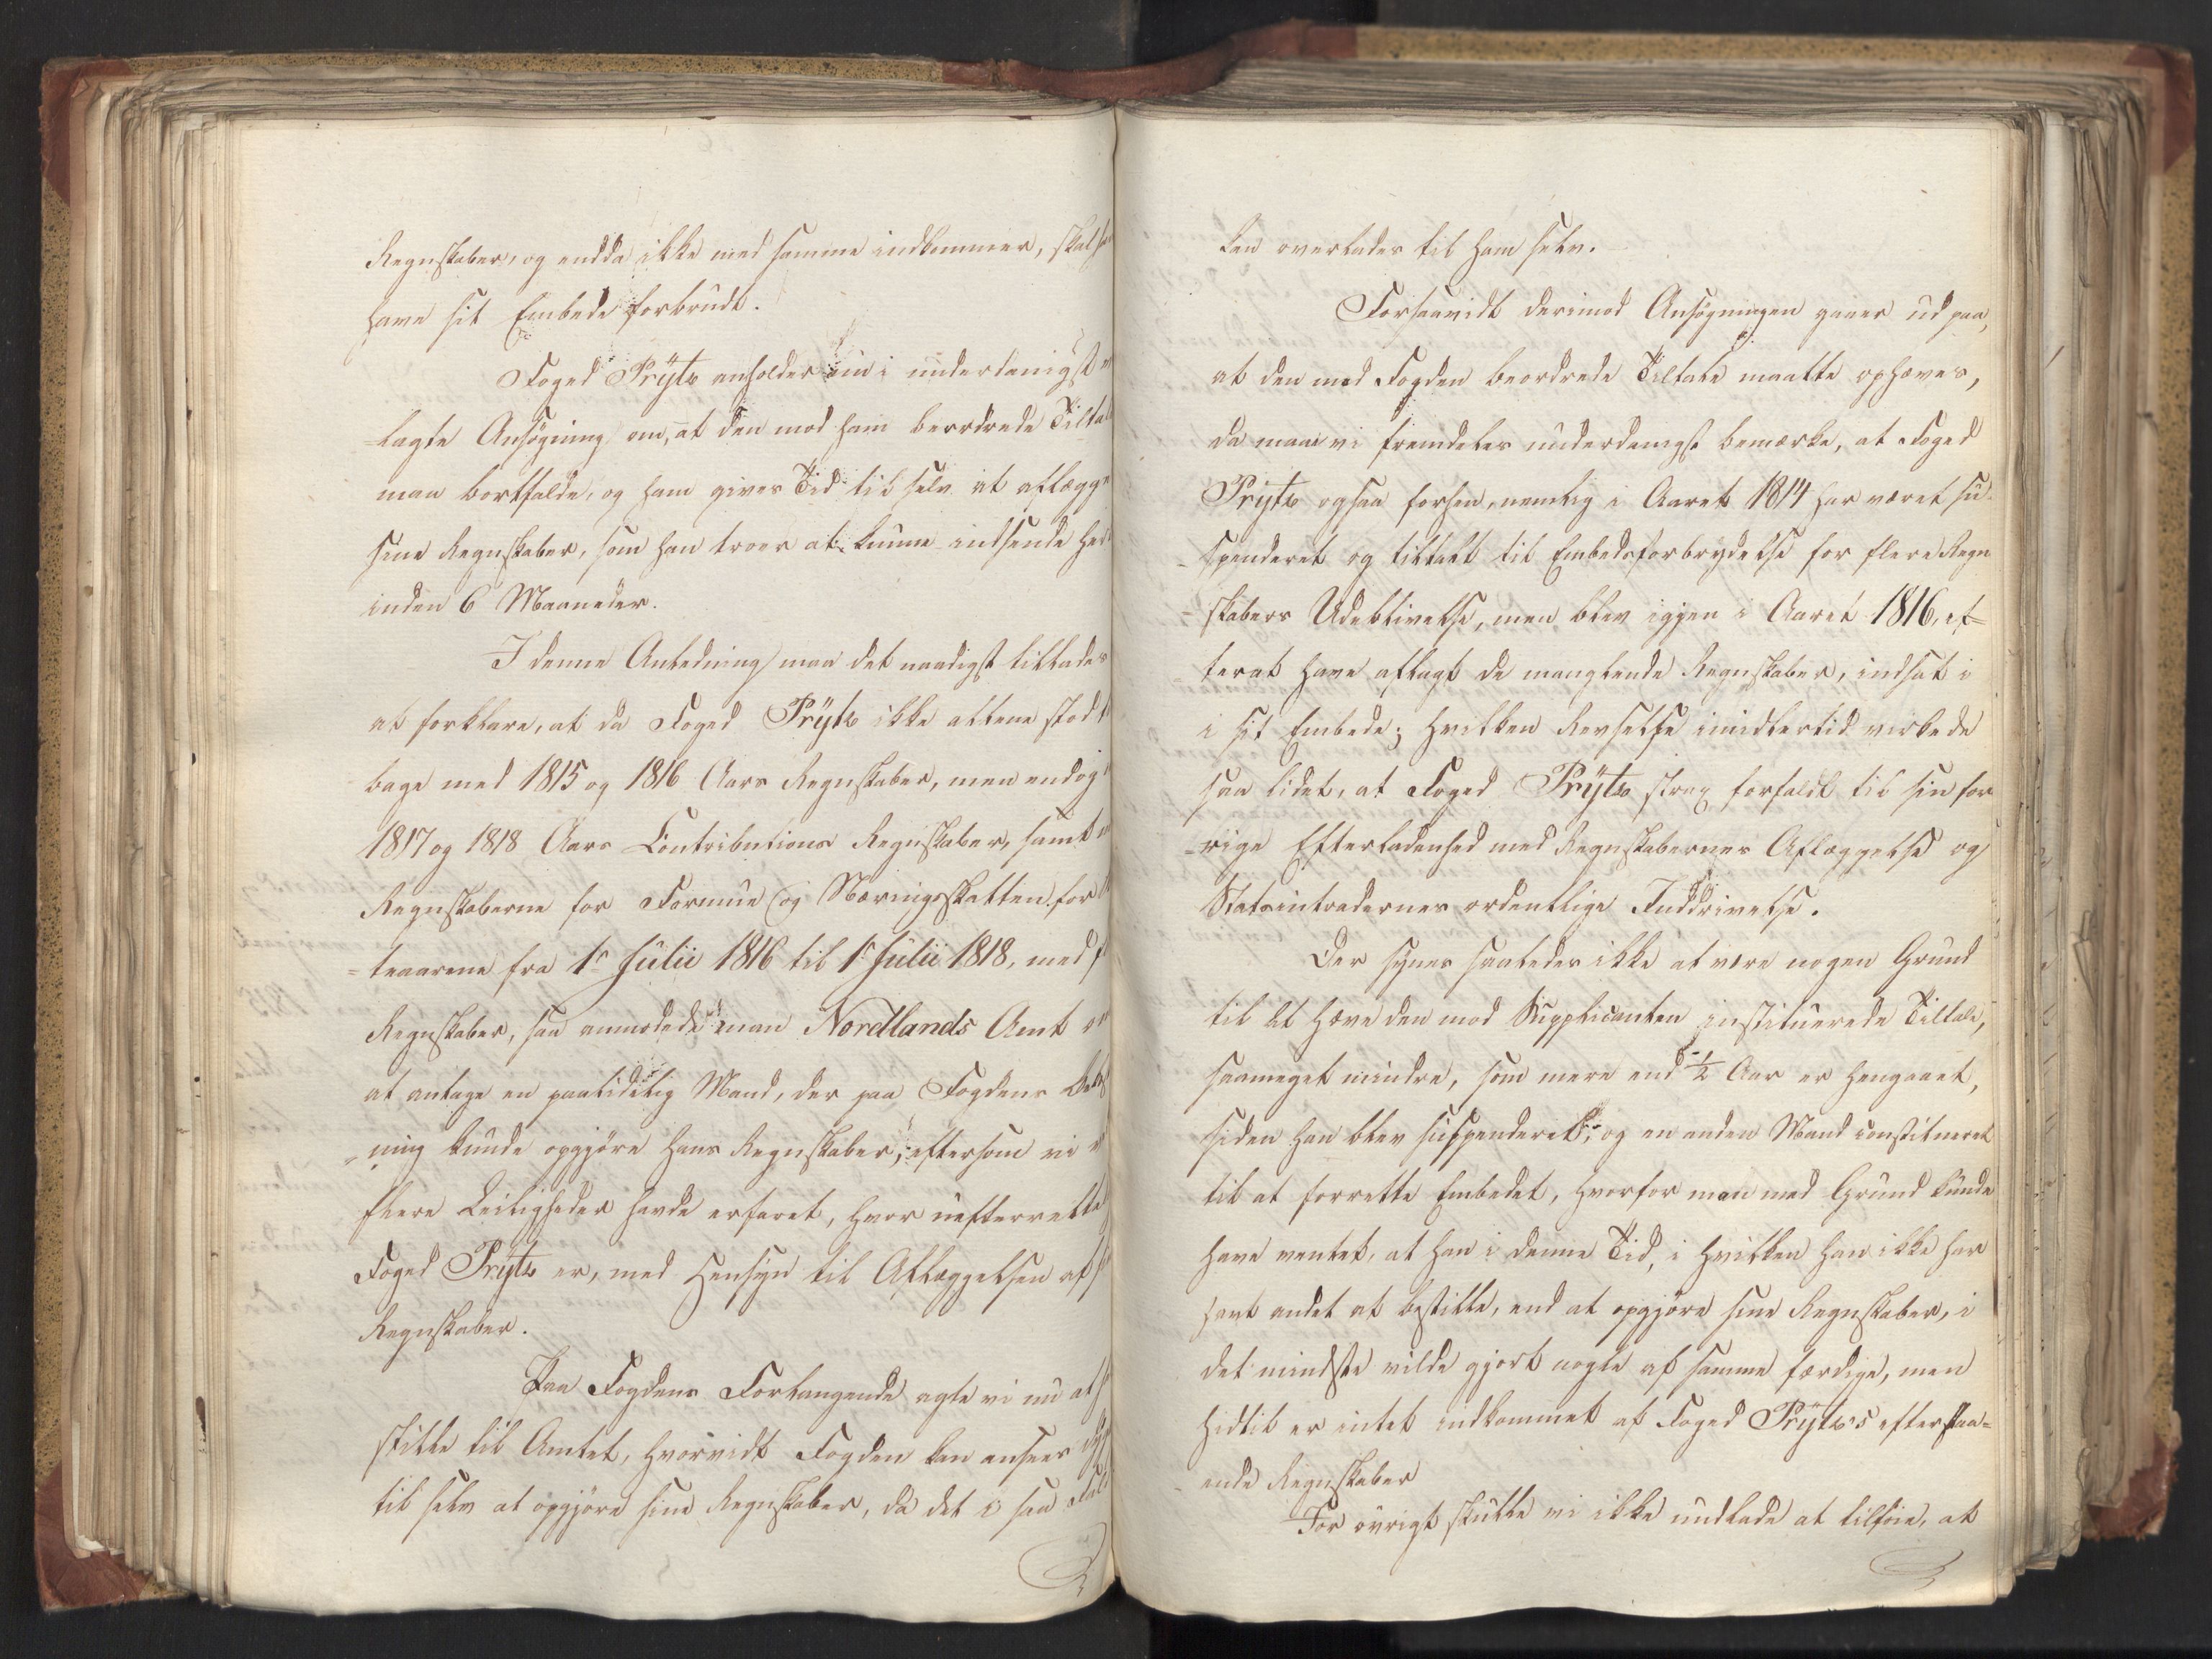 Regnskaber, og endda ikke med samme indkommer, skal
have sit Embede forbrudt.
Foged Prÿtz anholder nu i underdanigst
-lagte Ansøgning om, at den mod ham beordrede Tiltal
maa bortfalde, og ham gives Tid til selv at aflægge
sine Regnskaber, som han troer at kunne indsende
inden 6 Maaneder.
I denne Anledning maa det naadigst tillades
at forklare, at da Foged Prÿtz ikke allene stod
bage med 1815 og 1816 Aars Regnskaber, men endog
1817 og 1818 Aars Contributions Regnskaber, samt
Regnskaberne for Formue og Næringsskatten for
-teaarene fra 1r Julii 1816 til 1r Julii 1818, med
Regnskaber, saa anmodede man Nordlands Amt
at antage en paalidelig Mand, der paa Fogdens
-ning kunde opgjöre hans Regnskaber, eftersom vi
flere Leiligheder havde erfaret, hvor uefterrette
Foged Prÿtz er, med Hensyn til Aflæggelsen af
Regnskaber.
Paa Fogdens Forlangende agte vi nu at
stille til Amtet, hvorvidt Fogden kan ansees
til selv at opgjöre sine Regnskaber, da det i saa Fald
kan overlades til ham selv.
Forsaavidt derimod Ansøgningen gaaer ud paa,
at den mod Fogden beordrede Tiltale maatte ophæves,
da maae vi fremdeles underdanigst bemærke, at Foged
Prÿtz ogsaa forhen, nemlig i Aaret 1814 har været su-
-spenderet og tiltalt til Embedsforbrydelse for flere Regn
-skabers Udeblivelse, men blev igjen i Aaret 1816, ef=
terat have aflagt de manglende Regnskaber, indsat i
i sit Embede; hvilken Revselse imidlertid virkede
saa lidet, at Foged Prÿtz strax forfaldt til sin for
-rige Efterladenhed med Regnskabernes Aflæggelse og
Statsintradernes ordentlige Inddrivelse.
Der synes saaledes ikke at være nogen Grund
til at hæve den mod Supplicanten instituerede Tiltale,
saameget mindre, som mere end ½ Aar er hengaaet,
siden han blev suspenderet, og en anden Mand constitueret
til at forrette Embedet, hvorfor man med Grund kunde
have ventet, at han i denne Tid, i hvilken han ikke har
havt andet at bestille, end at opgjöre sine Regnskaber, i
det mindste vilde gjort nogle af samme færdige, men
hidtil er intet indkommet af Foged Prÿtz's efterstaa=
-ende Regnskaber
For øvrigt skulle vi ikke undlade at tilføie, at